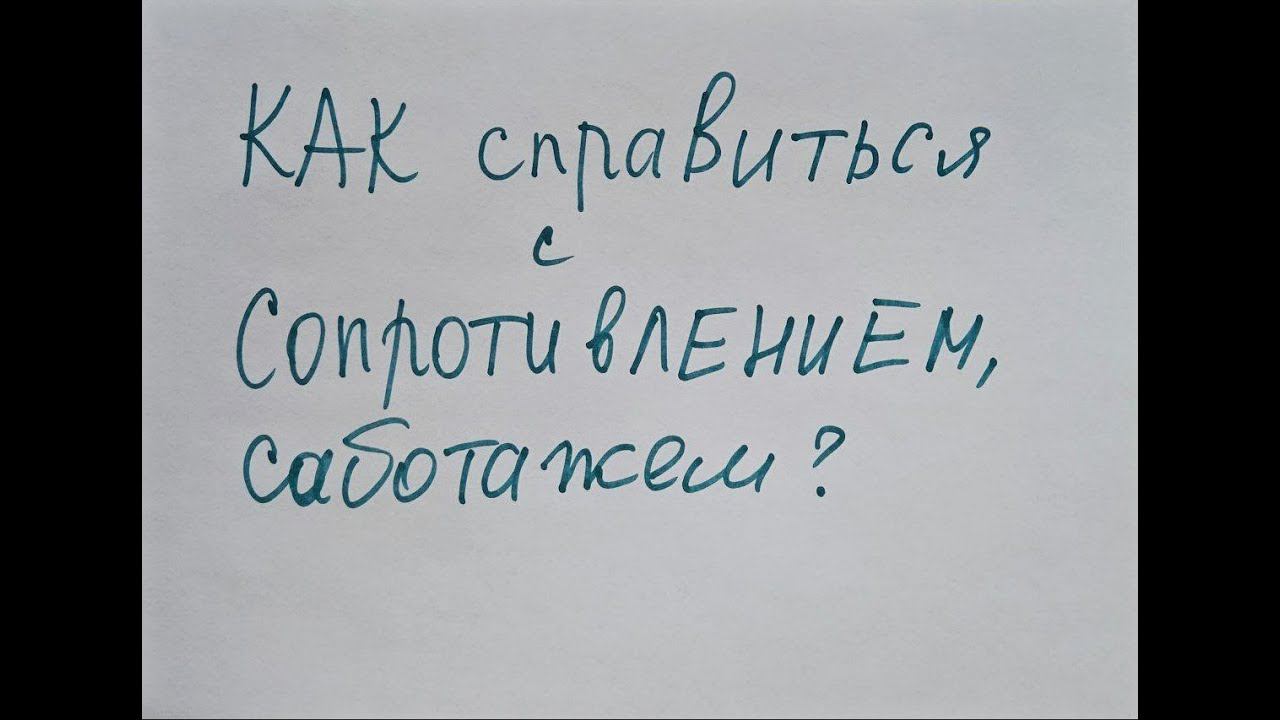 КАК справиться
с
Сопротивлением,
саботажем?